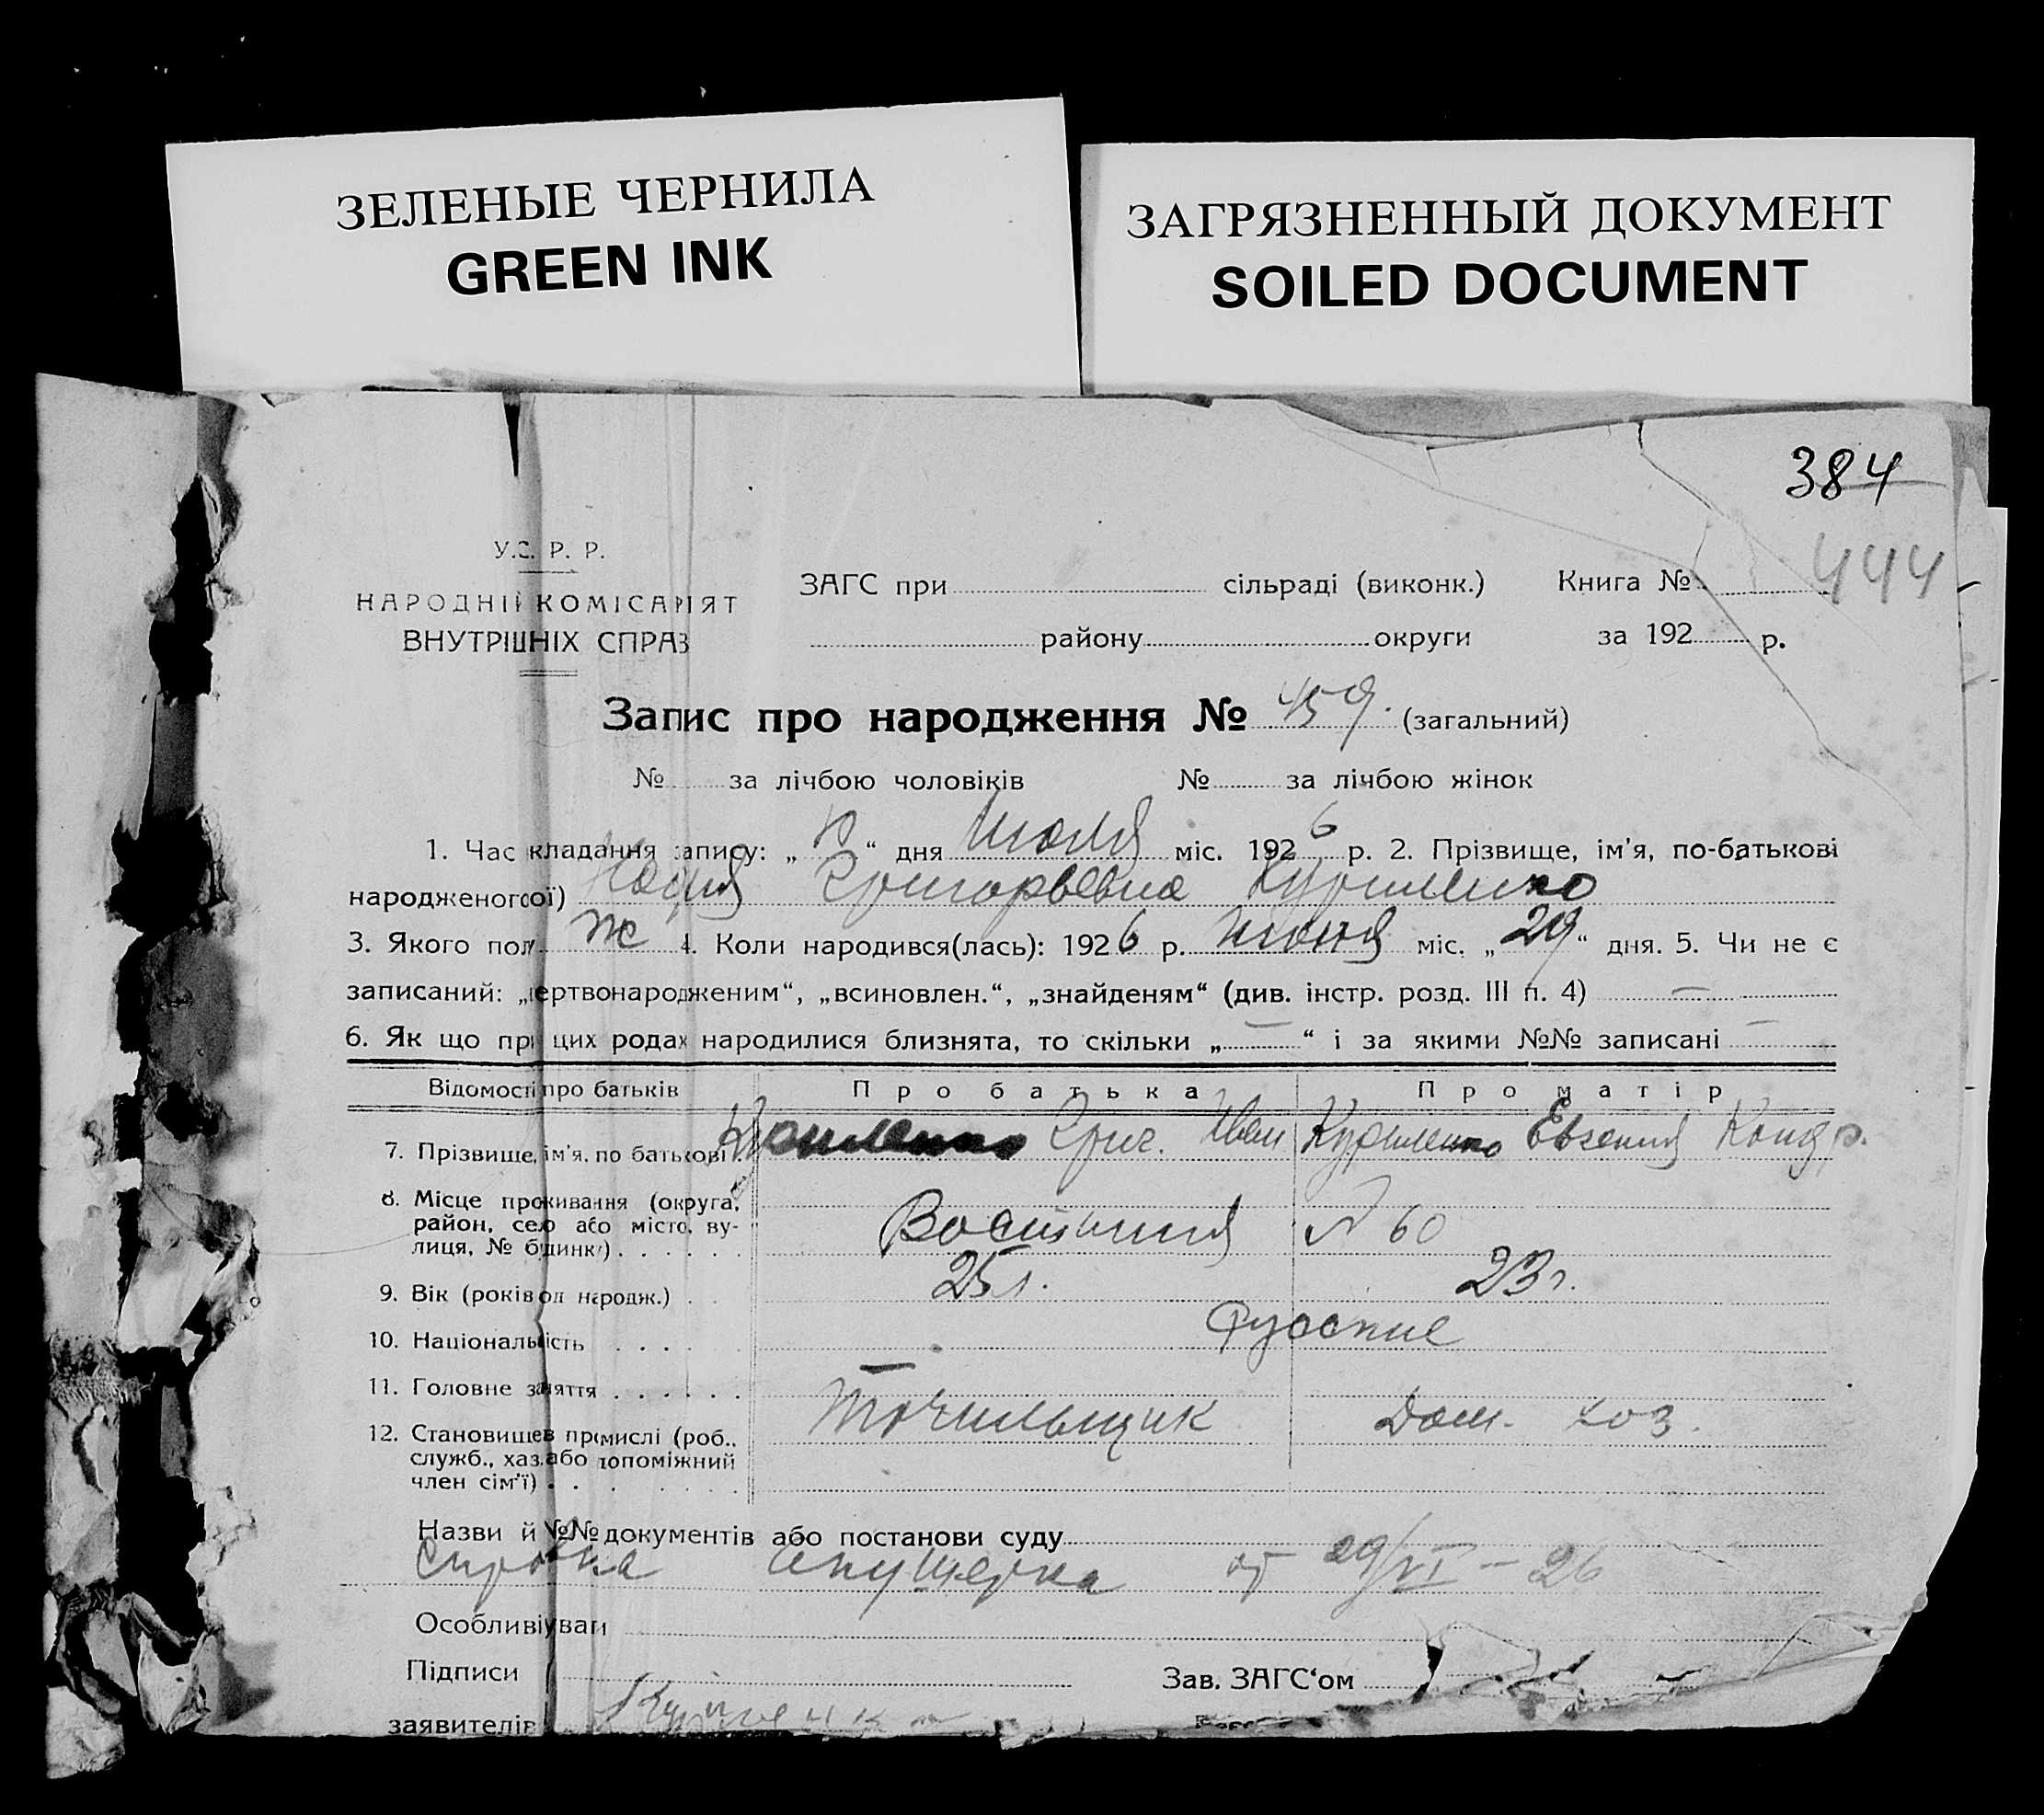 ЗЕЛЕНЫЕ ЧЕРНИЛА
GREEN INK
ЗАГРЯЗНЕННЫЙ ДОКУМЕНТ
SOILED DOCUMENT
384
444
У.С.Р.Р.
НАРОДНІЙ КОМІСАРІЯТ
ВНУТРІШНІХ СПРАВ
ЗАГС при сільраді (виконк.) Книга №
району округи за 192 р.
Запис про народження № 459. (загальний)
№ за лічбою чоловіків № за лічбою жінок
1. Час кладання запису: „ “ дня Июля міс. 1926 р. 2. Прізвище, ім'я, по-батькові
народженого(ої) Григорьевна
3. Якого пол ж 4. Коли народився(лась): 1926 р. июня міс. „29“ дня. 5. Чи не є
записаний: „мертвонародженим“, „всиновлен.“, „знайденям“ (див. інстр. розд. III п. 4) —
6. Як що при цих родах народилися близнята, то скільки „—“ і за якими №№ записані —
Відомості про батьків Про батька Про матір
7. Прізвище, ім'я, по батькові Григ. Иван Евгения Кондр.
8. Місце проживання (округа,
район, село або місто, ву-
лиця, № будинку) . . . . . . № 60
9. Вік (років од народж.) . . 25 л. 23 г.
10. Національність . . . . Русские
11. Головне заняття . . . . . . Точильщик Дом. хоз.
12. Становище в промислі (роб.,
служб., хаз. або допоміжний
член сім'ї) . . . . . .
Назви й №№ документів або постанови суду
Справка акушерка от 29/VI – 26
Особливі уваги
Підписи Зав. ЗАГС‘ом
заявителів